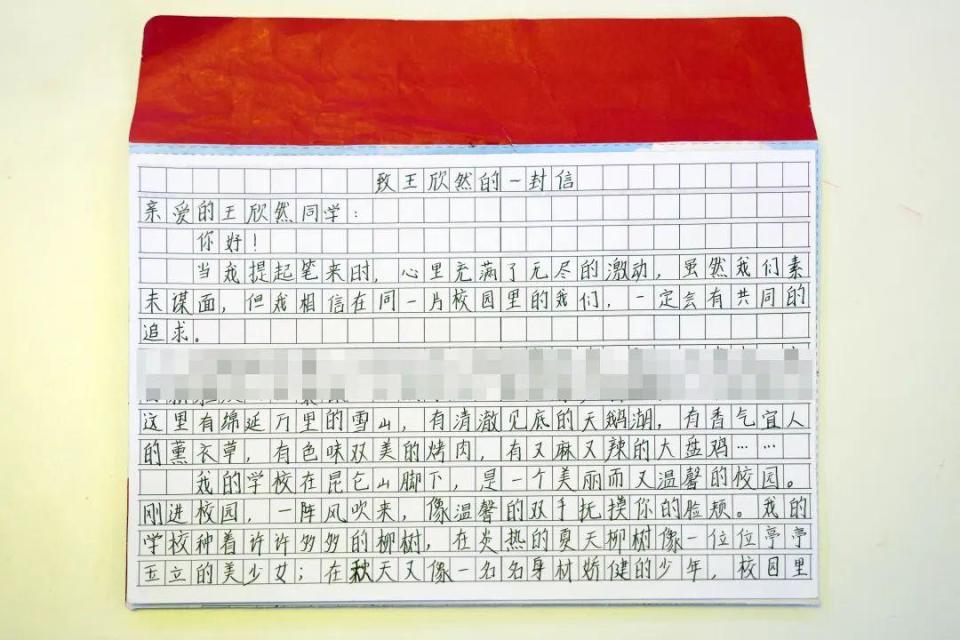 致王欣然的一封信
亲爱的王欣然同学：
你好！
当我提起笔来时，心里充满了无尽的激动，虽然我们素
未谋面，但我相信在同一片校园里的我们，一定会有共同的
追求。
这里有绵延万里的雪山，有清澈见底的天鹅湖，有香气宜人
的薰衣草，有色味双美的烤肉，有又麻又辣的大盘鸡……
我的学校在昆仑山脚下，是一个美丽而又温馨的校园。
刚进校园，一阵风吹来，像温馨的双手抚摸你的脸颊。我的
学校种着许许多多的柳树，在炎热的夏天柳树像一位位亭亭
玉立的美少女；在秋天又像一名名身材娇健的少年，校园里